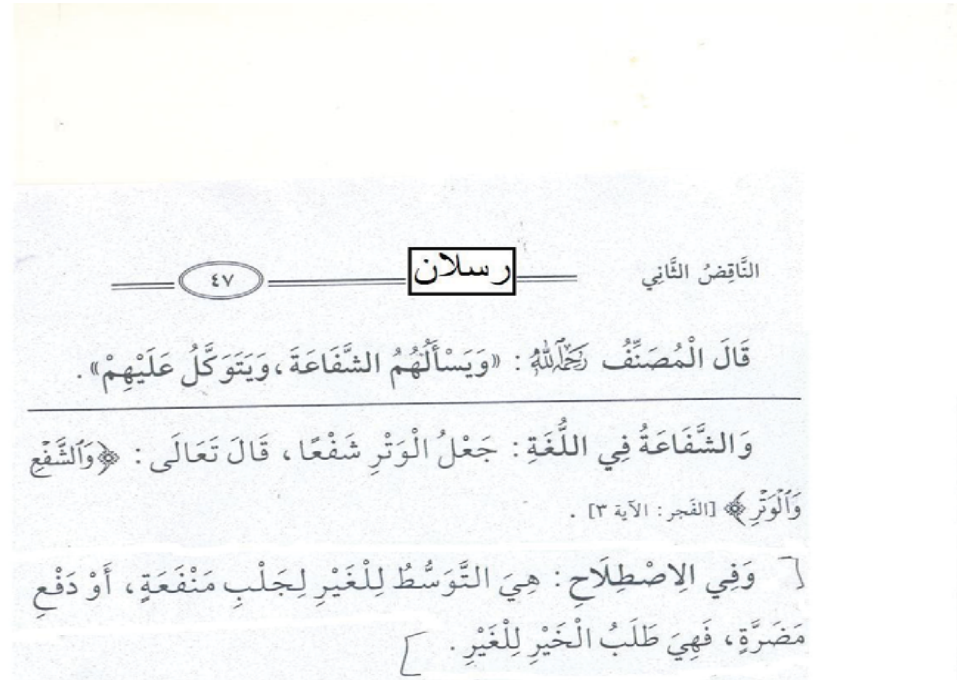 النَّاقِضُ الثَّانِي رسلان ٤٧
قَالَ الْمُصَنِّفُ رَحِمَهُ اللَّهُ : «وَيَسْأَلُهُمُ الشَّفَاعَةَ ، وَيَتَوَكَّلُ عَلَيْهِمْ» .
وَالشَّفَاعَةُ فِي اللُّغَةِ : جَعْلُ الْوَتْرِ شَفْعًا ، قَالَ تَعَالَى : ﴿وَٱلشَّفْعِ
وَٱلْوَتْرِ﴾ [الفَجر : الآية ٣] .
[ وَفِي الِاصْطِلَاحِ : هِيَ التَّوَسُّطُ لِلْغَيْرِ لِجَلْبِ مَنْفَعَةٍ ، أَوْ دَفْعِ
مَضَرَّةٍ ، فَهِيَ طَلَبُ الْخَيْرِ لِلْغَيْرِ . ]